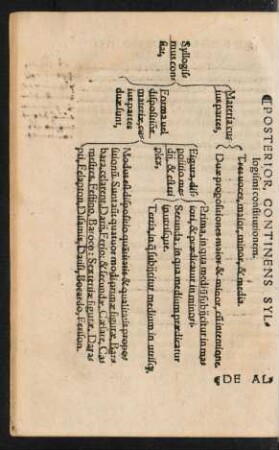 POSTERIOR, CONTINENS SYL-
logismi constitutionem.
Syllogis-
mus con-
stat,
Materia cu-
ius partes,
Tres voces, maior, minor, & media.
Duæ propositiones maior & minor, cũ intentione.
Forma uel
dispositiõe,
materiæ, cu-
ius partes
duæ sunt,
Figura, dis-
positio me-
dii, & est tri-
plex,
Prima, in qua mediũ subiicitur in ma-
iori, & prædicatur in minori.
Secunda, in qua medium prædicatur
Tertia, in q̃ subiicitur medium in utrisq;
Modus est dispositio quãtitatis & qualitatis propo-
sitionũ. Sunt aũt quatuor modi primæ figuræ, Bar-
bara, celarent, Darii, Ferio: & secundæ, Cæsare, Ca-
mestres, Festino, Baroco: Sex tertiæ figuræ, Darap-
ti, Felapton, Disamis, Datisi, Bocardo, Ferison.
DE AL-